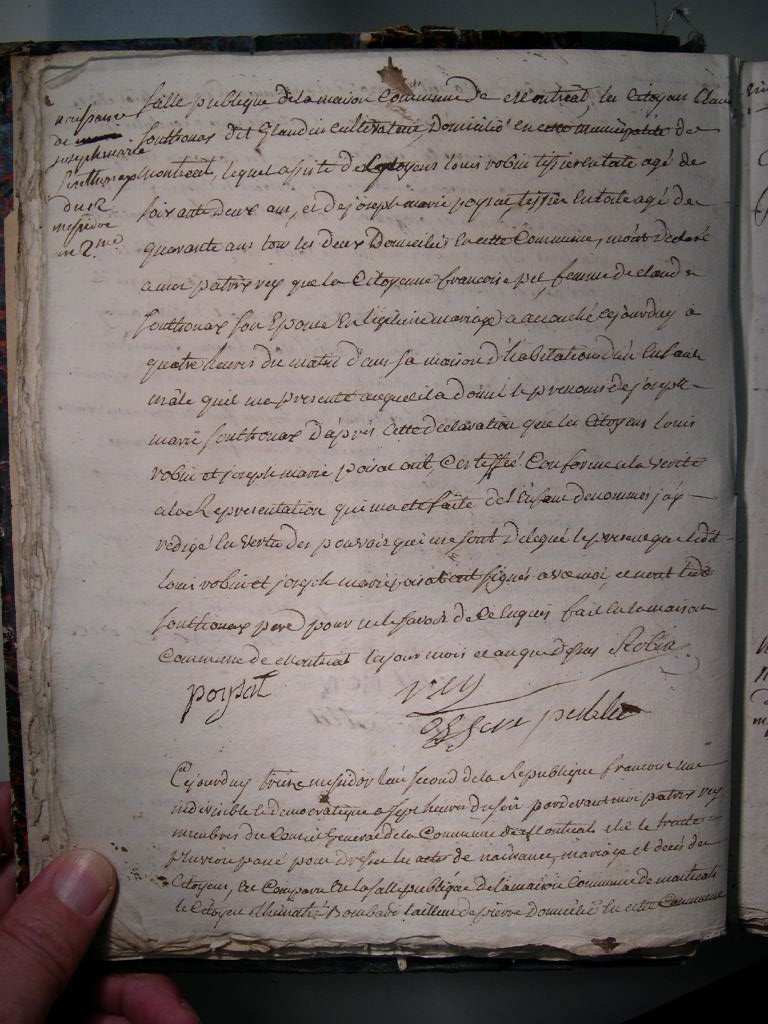 naissance
de
joseph marie
sonthonax
du 12
messidor
an 2.me
salle publique de la maison Commune de Montreal, le Citoyen Claude
sonthonax dit Glaudin cultivateur, Domicilié en cette municipalité de
montreal, lequel assisté des Citoyens louis robin tissier en toile agé de
soixante deux ans, et de joseph marie poysat, tessier en toile agé de
quarante ans tous les deux Domeiliés en cette Commune, m'ont declaré
a moi patrix rey que la Citoyenne francoise pet, femme de claude
sonthonax son Epouse en legitime mariage a accouché cejourduy a
quatre heures du matin d'ans sa maison d'habitation d'un Enfant
mâle qu'il me presente auquel il a donné le prenoms de joseph
marie sonthonax D'après Cette declaration que les Citoyens louis
robin et joseph marie poisat ont Certiffié Conforme a la verité
a la Representation qui ma eté faite de l'Enfant denommes j'ay
redigé En vertu des pouvoirs qui me sont delegué le present que ledit
louis robin et joseph marie poisat ont signés avec moi, et non ledit
sonthonax pere pour ne le savoir de Ce Enquis fait en la maison
Commune de Montreal les jour mois et an que dessus Robin
poysat rey
Cejourduy treize messidor l'an second de la Republique francoise une
indivisible et democratique a sept heures du soir pardevant moi patrix rey
membres du Conseil General de la Commune de Montreal elu le trente
pluviose passé pour dresser les actes de naissance, mariage et deces des
Citoyens, est Comparu en la salle publique de la maison Commune de montreal
le Citoyen Bombard tailleur de pierre Domicilié en cette Commune